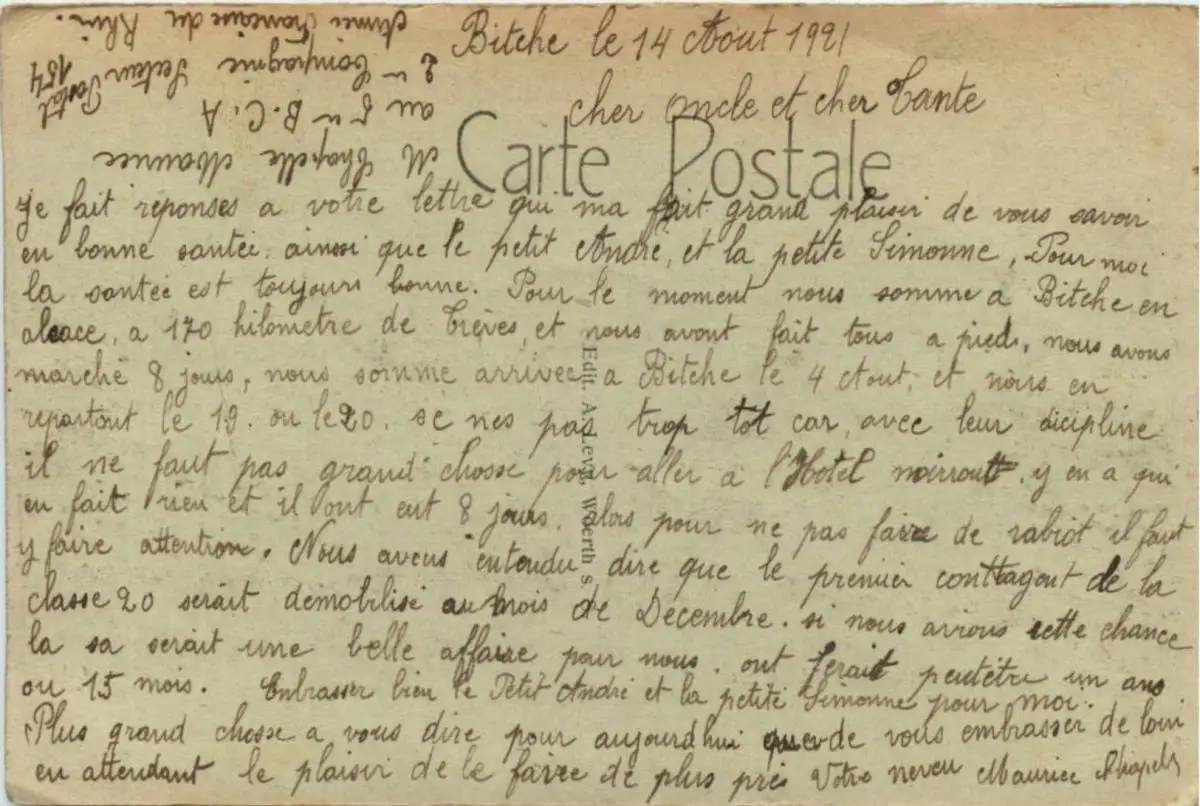 Bitche le 14 Aout 1921
cher Oncle et cher Tante
M Chapelle Maurice
au 5e B.C.A
2e Compagnie Secteur Postal 154
Armée Française du Rhin.
Carte Postale
Je fait reponses a votre lettre qui ma fait grand plaisir de vous savoir
en bonne santée, ainssi que le petit André, et la petite Simonne, Pour moi
la santée est toujours bonne. Pour le moment nous somme a Bitche en
alsace, a 170 kilometre de Trèves, et nous avont fait tous a pieds, nous avons
marché 8 jours, nous somme arrivée a Bitche le 4 Aout, et nous en
repartont le 19. ou le 20. se nes pas trop tot car, avec leur dicipline
il ne faut pas grand chosse pour aller a l'Hotel noirroutt. y en a qui
en fait rien et il ont eut 8 jours. alors pour ne pas faire de rabiot il faut
y faire attention. Nous avons entendu dire que le premier conttagent de la
classe 20 serait démobilisé au mois de Decembre. si nous avions cette chance
la sa serait une belle affaire pour nous. ont ferait peutêtre un ans
ou 15 mois. Enbrasser bien le Petit André et la petite Simonne pour moi.
Plus grand chosse a vous dire pour aujourdhui que de vous embrasser de loin
en attendant le plaisir de le faire de plus près Votre neveu Maurice Chapelle
Edit. A. Levy, Woerth s.